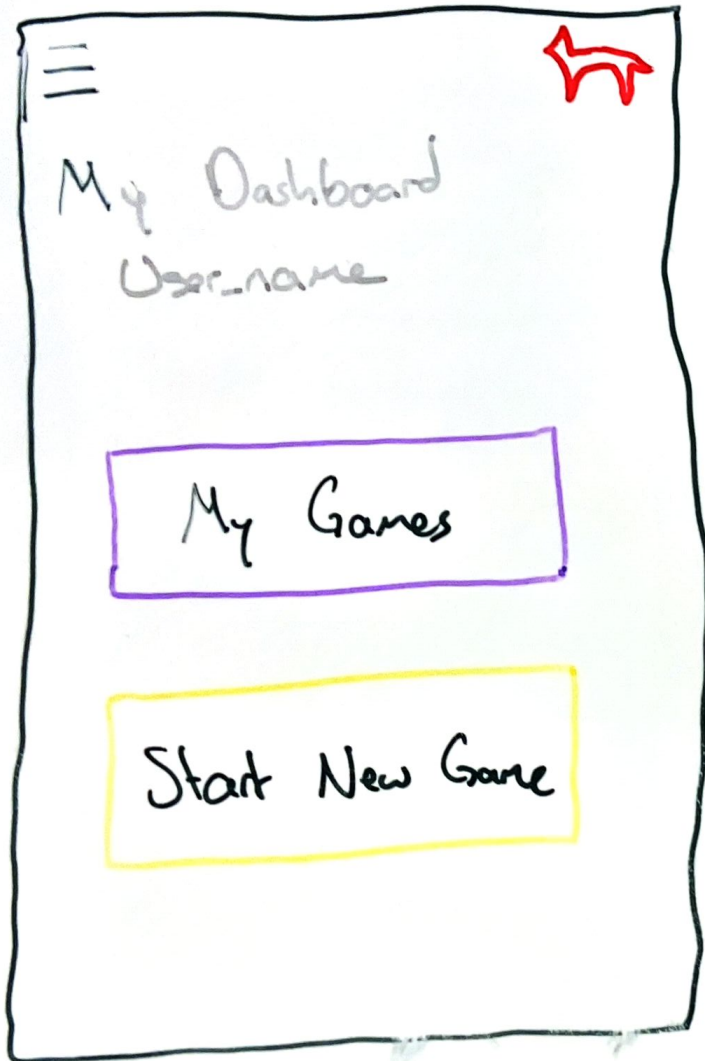 My Dashboard
User_name
My Games
Start New Game